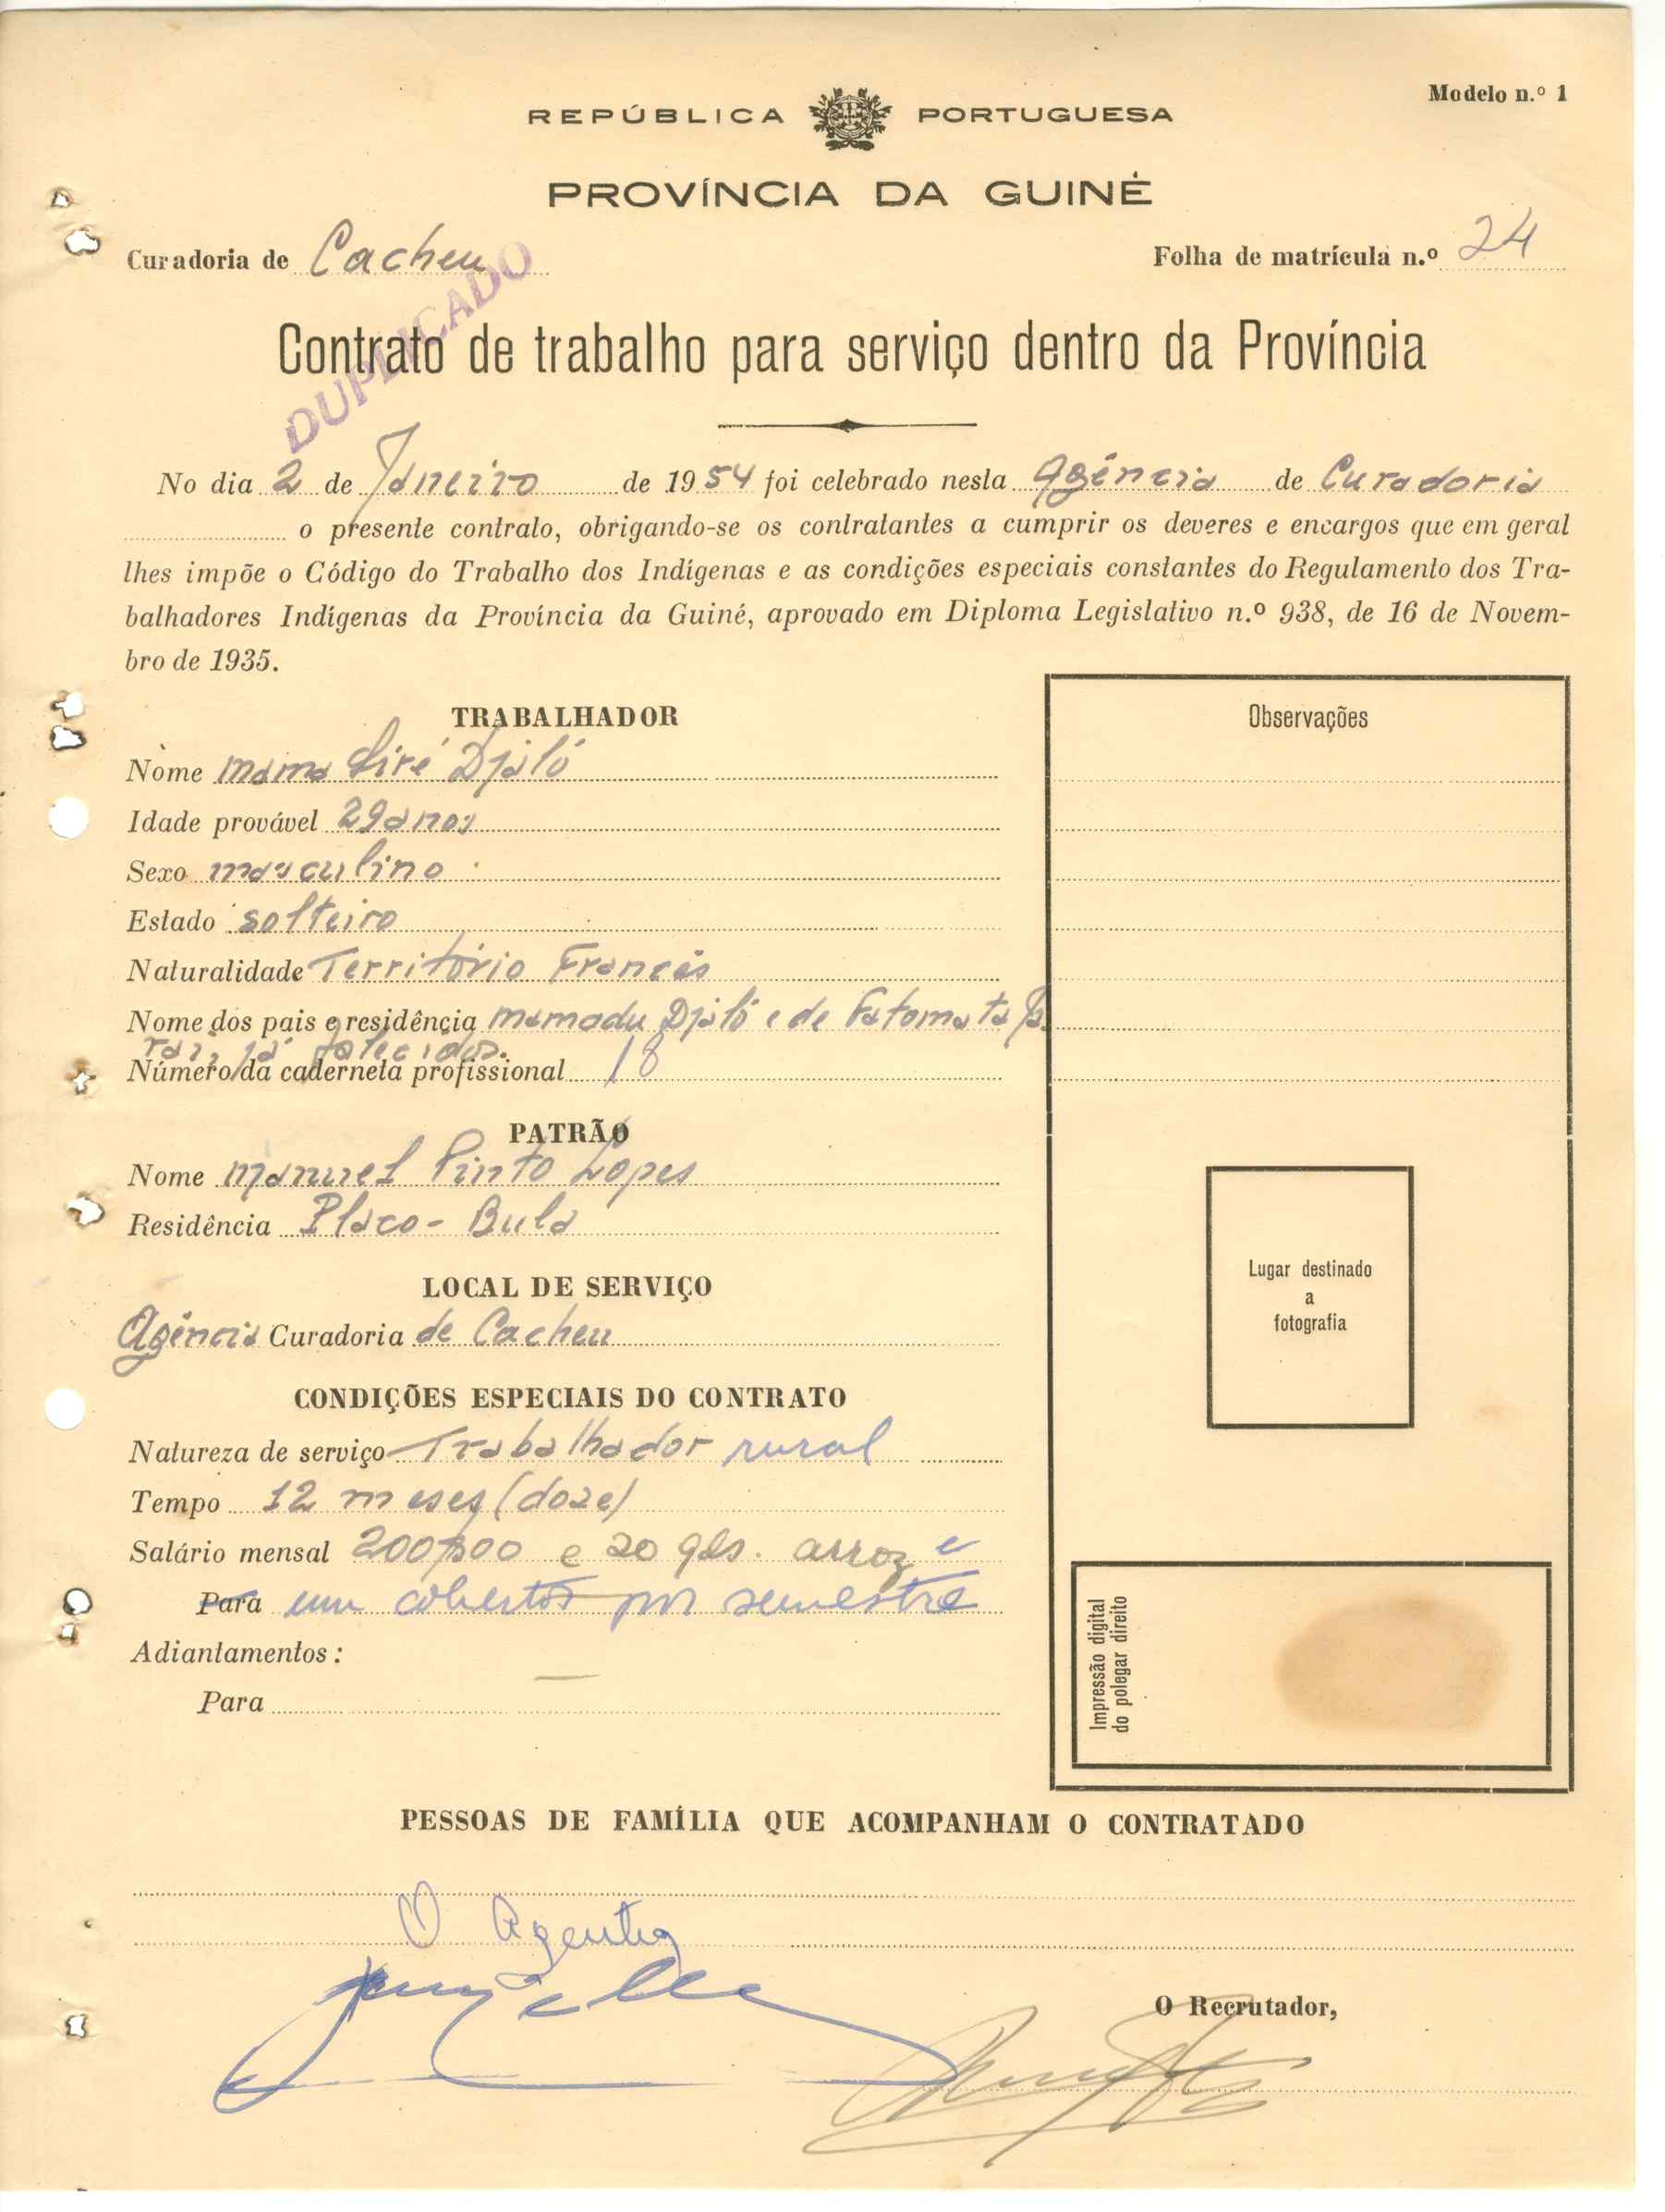 Modelo n.º 1
REPÚBLICA PORTUGUESA
PROVÍNCIA DA GUINÉ
Curadoria de Cacheu
Folha de matrícula n.º 24
DUPLICADO
Contrato de trabalho para serviço dentro da Província
No dia 2 de Janeiro de 1954 foi celebrado nesta Agência de Curadoria
o presente contrato, obrigando-se os contratantes a cumprir os deveres e encargos que em geral
lhes impõe o Código do Trabalho dos Indígenas e as condições especiais constantes do Regulamento dos Tra-
balhadores Indígenas da Província da Guiné, aprovado em Diploma Legislativo n.º 938, de 16 de Novem-
bro de 1935.
TRABALHADOR
Nome mama Siré Djaló
Idade provável 29 anos
Sexo masculino
Estado solteiro
Naturalidade Território Francês
Nome dos pais e residência mamadu Djaló e de Fatomata
já falecidos.
Número da caderneta profissional 18
PATRÃO
Nome manuel Pinto Lopes
Residência Placo - Bula
LOCAL DE SERVIÇO
Agência Curadoria de Cacheu
CONDIÇÕES ESPECIAIS DO CONTRATO
Natureza de serviço Trabalhador rural
Tempo 12 meses (doze)
Salário mensal 200$00 e 20 qls. arroz e
Para um cobertor por semestre
Adiantamentos: —
Para
Observações
Lugar destinado
a
fotografia
Impressão digital
do polegar direito
PESSOAS DE FAMÍLIA QUE ACOMPANHAM O CONTRATADO
O Agente
O Recrutador,